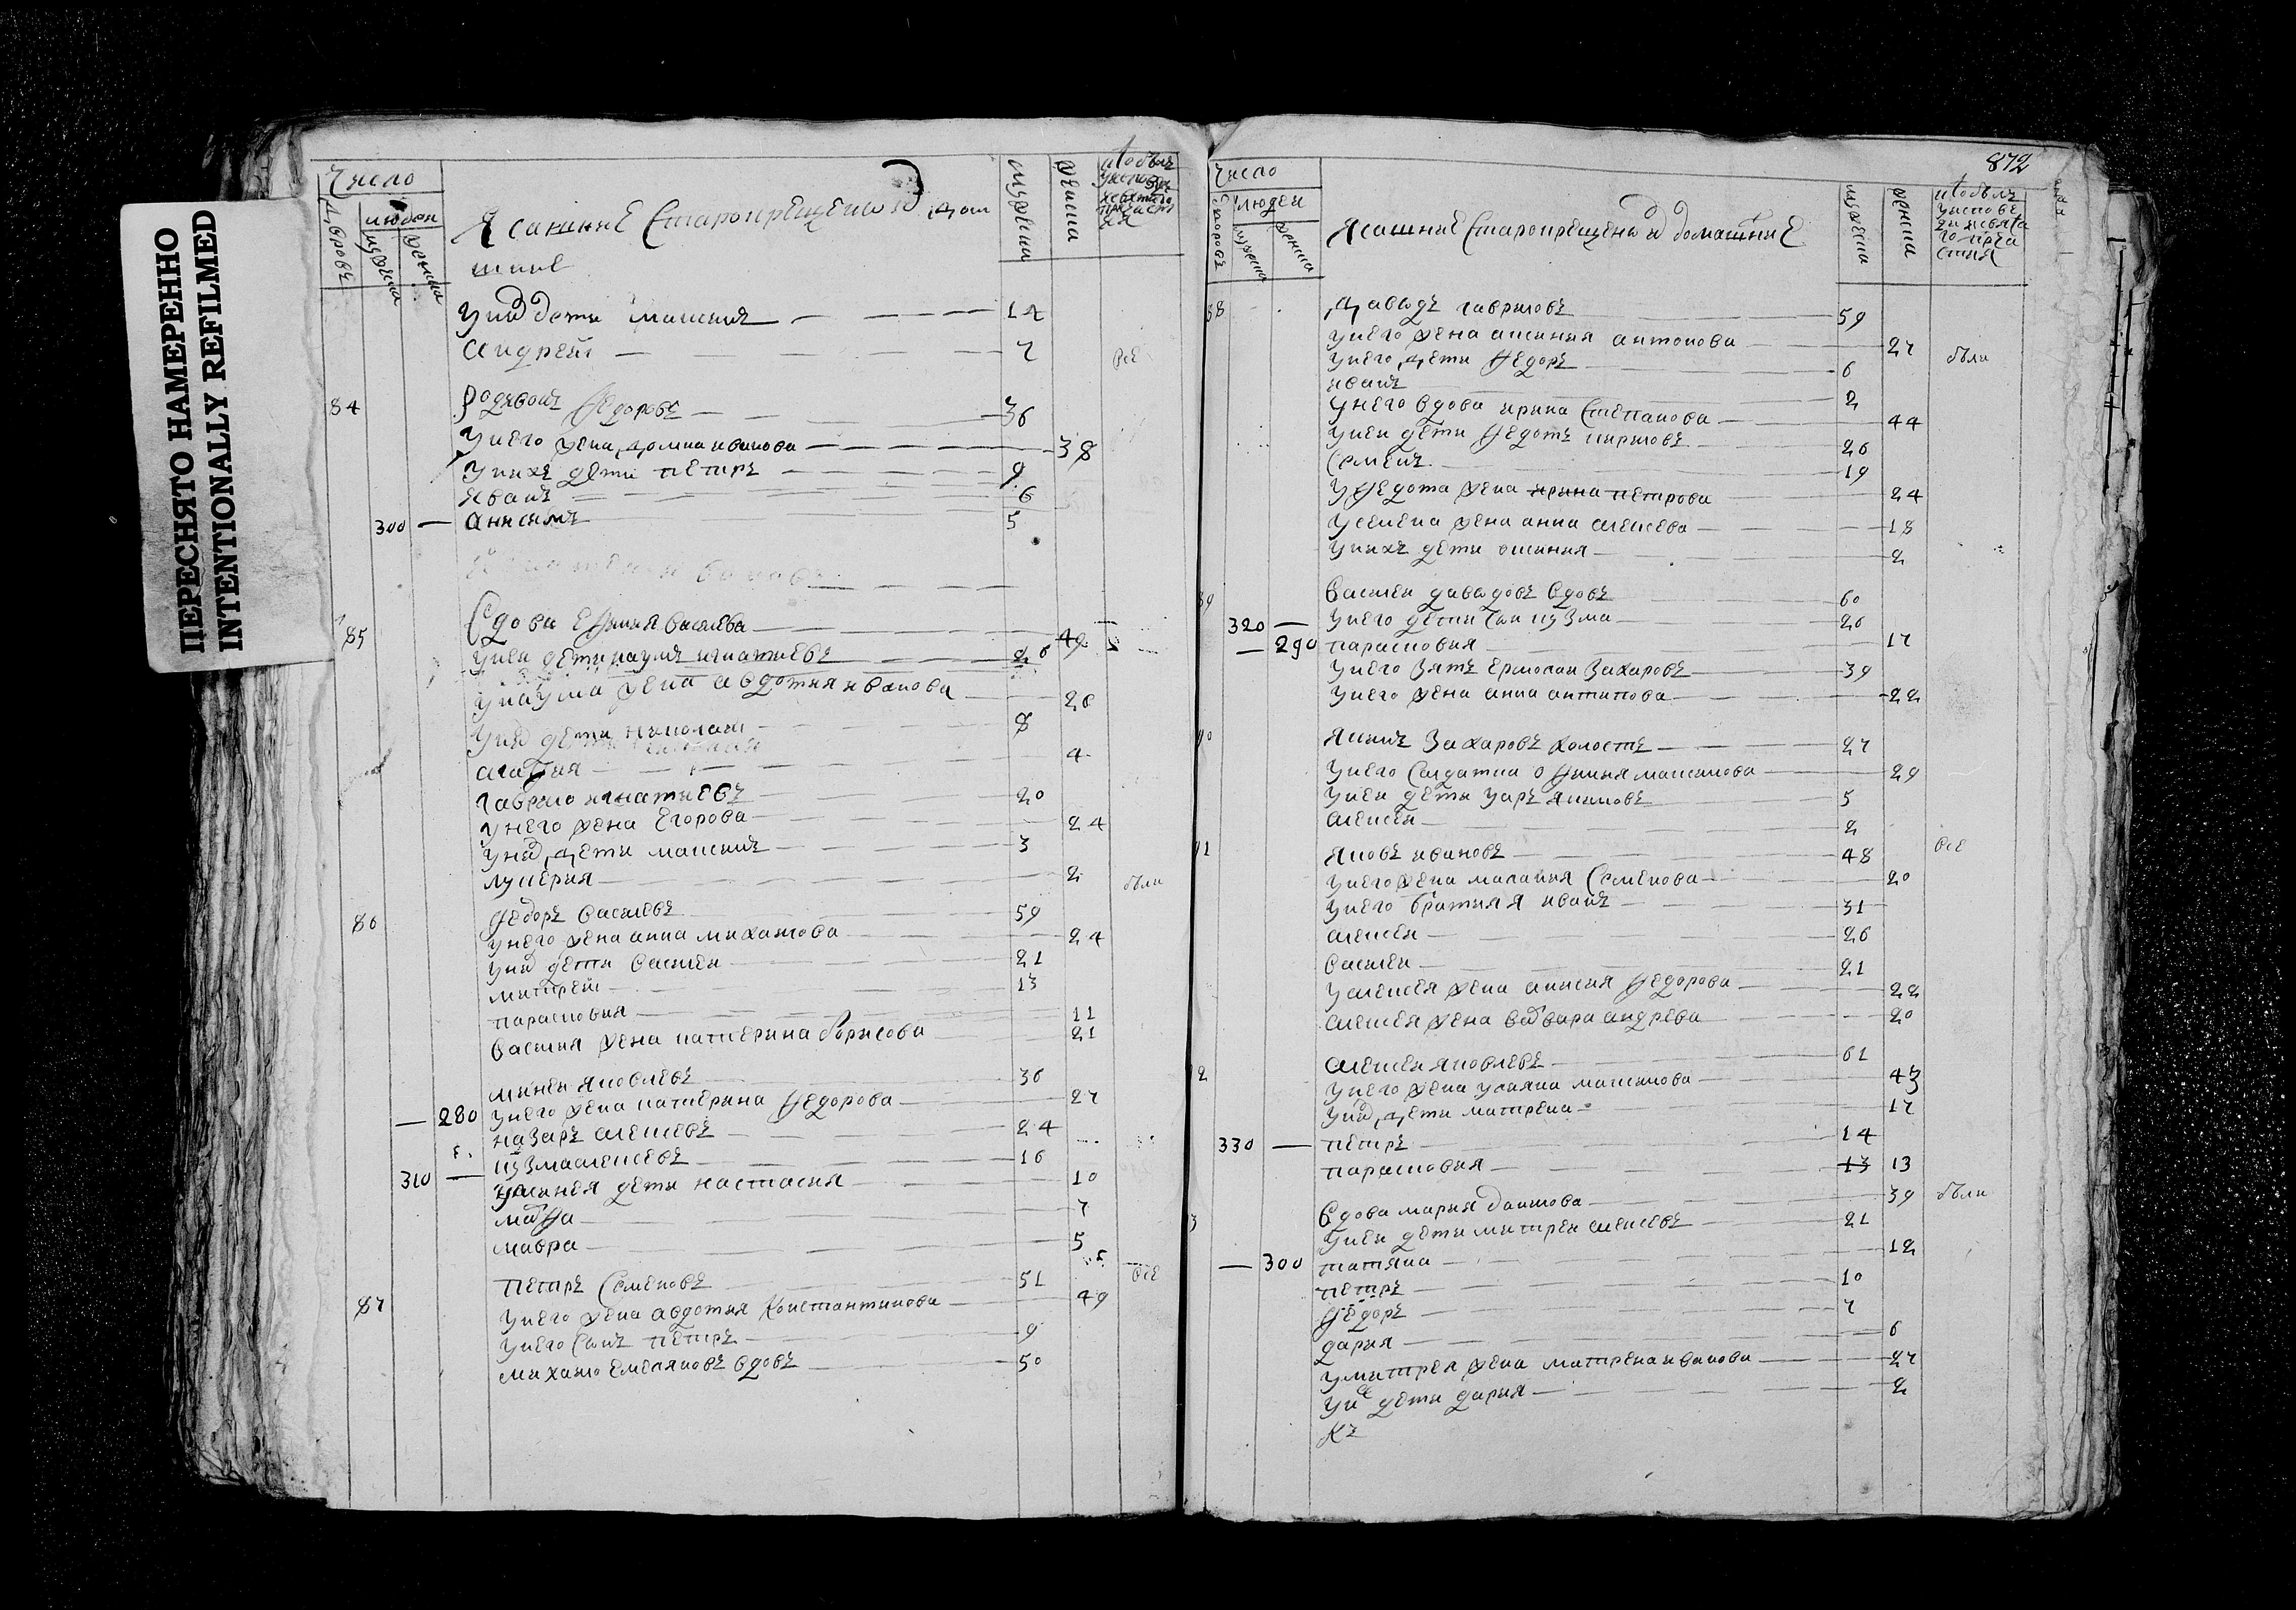 ПЕРЕСНЯТО НАМЕРЕННО
INTENTIONALLY REFILMED
Число
дворовъ
людеи
мужска
женска
Ясашние Старокрещены и дом
шние
мужеска
женска
кто былъ
у исповеди
и святаго
причаст
ия
у них дети максимъ 12
андреи 7 все
84 Родивонъ федоровъ 36
у него жена домна иванова 38
у нихъ дети петръ 9
иванъ 6
300 анисимъ 5
85 вдова ефимия василева 49
у неи дети наумъ игнатиевъ 26
у наума жена авдотия иванова 26
у них дети николаи 8
агафия 4
гаврило игнатиевъ 20
у него жена егорова 24
у них дети максимъ 3
лукерия 2 были
86 федоръ василевъ 59
у него жена анна михаилова 24
у них дети василеи 21
митреи 13
парасковия 11
василия жена катерина борисова 21
минеи яковлевъ 36
280 у него жена катерина федорова 27
назаръ алексеевъ 24
кузма алексеевъ 16
310 дети настасия 10
марфа 7
мавра 5
петръ Семеновъ 51 все
87 у него жена авдотия Константинова 49
у него сынъ петръ 9
михаило емеляновъ вдовъ 50
872
Число
дворовъ
людеи
мужска
женска
Ясашние Старокрещены и домашние
мужеска
женска
кто былъ
у испове
ди и свята
го прича
стия
88 Давыдъ гавриловъ 59
у него жена аксиния антонова 27 были
у него дети федоръ 6
иванъ 2
у него вдова ирина Степанова 44
у неи дети федотъ кириловъ 26
Семенъ 19
у федота жена ирина петрова 24
у семена жена анна алексеева 18
у нихъ дети оксиния 2
89 Василеи давыдовъ вдовъ 60
320 у него дети сын кузма 20
290 парасковия 17
у него зять ермолаи Захаровъ 39
у него жена анна антипова 22
90 Якимъ Захаровъ холостъ 27
у него салдатка офимия максимова 29
у неи дети уаръ якимовъ 5
алексеи 2
91 яковъ ивановъ 48 все
у него жена малания Семенова 20
у него братия иванъ 31
алексеи 26
василеи 21
у алексея жена анисия федорова 22
алексея жена варвара андреева 20
92 алексеи яковлевъ 61
у него жена улияна максимова 43
у них дети матрена 17
330 петръ 14
парасковия 13 13
93 вдова мария данилова 39 были
у неи дети митреи алексеевъ 21
300 татяна 12
петръ 10
федоръ 7
дария 6
у митрея жена матрена иванова 27
у нее дети дария 2
Къ